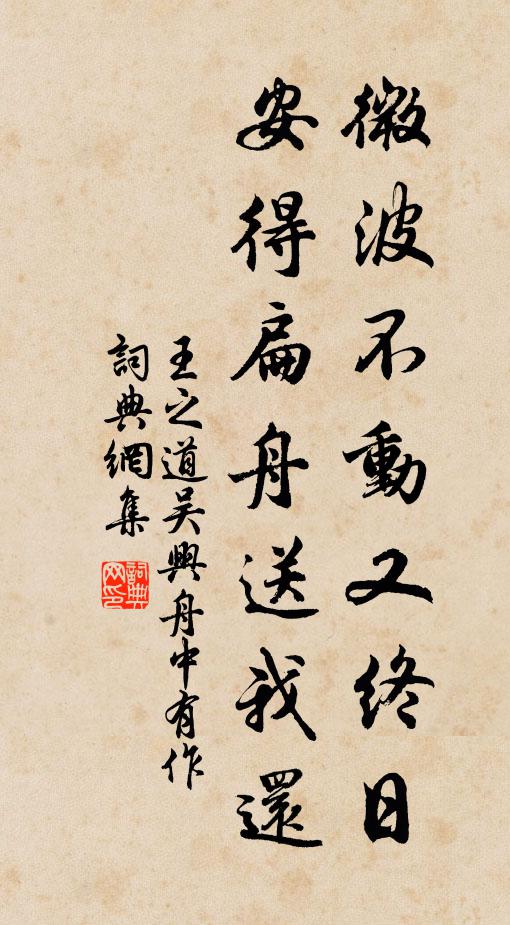 微波不動又終日
安得扁舟送我還
王之道吴興舟中有作
詞典網集
詞典
网印